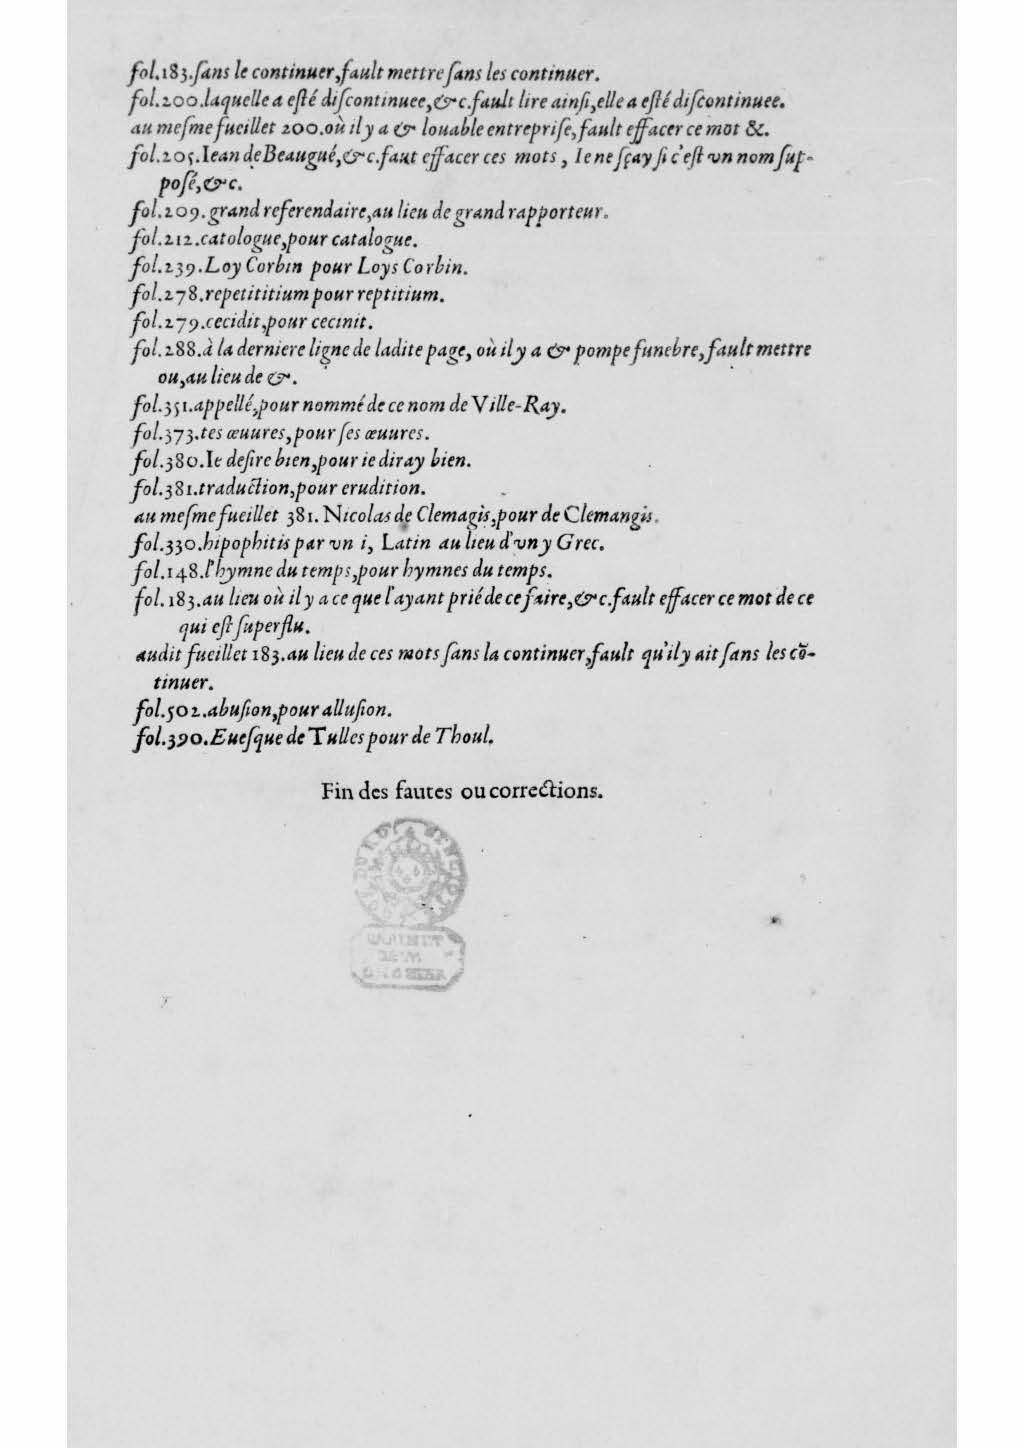 fol.183.ſans le continuer,fault mettre ſans les continuer.
fol.200.laquelle a eſté diſcontinuee,&c.fault lire ainſi,elle a eſté diſcontinuee.
au meſme fueillet 200.où il y a & louable entrepriſe,fault effacer ce mot &.
fol.205.Iean de Beaugué,&c.faut effacer ces mots, Ie ne ſçay ſi c'eſt vn nom ſup-
poſé,&c.
fol.209.grand referendaire,au lieu de grand rapporteur.
fol.212.catologue,pour catalogue.
fol.239.Loy Corbin pour Loys Corbin.
fol.278.repetititium pour reptitium.
fol.279.cecidit,pour cecinit.
fol.288.à la derniere ligne de ladite page, où il y a & pompe funebre,fault mettre
ou,au lieu de &.
fol.351.appellé,pour nommé de ce nom de Ville-Ray.
fol.373.tes œuures,pour ſes œuures.
fol.380.Ie deſire bien,pour ie diray bien.
fol.381.traduction,pour erudition.
au meſme fueillet 381. Nicolas de Clemagis,pour de Clemangis.
fol.330.hipophitis par vn i, Latin au lieu d'vn y Grec.
fol.148.l'hymne du temps,pour hymnes du temps.
fol.183.au lieu où il y a ce que l'ayant prié de ce faire,&c.fault effacer ce mot de ce
qui eſt ſuperflu.
audit fueillet 183.au lieu de ces mots ſans la continuer,fault qu'il y ait ſans les cõ-
tinuer.
fol.502.abuſion,pour alluſion.
fol.390.Eueſque de Tulles pour de Thoul.
Fin des fautes ou corrections.